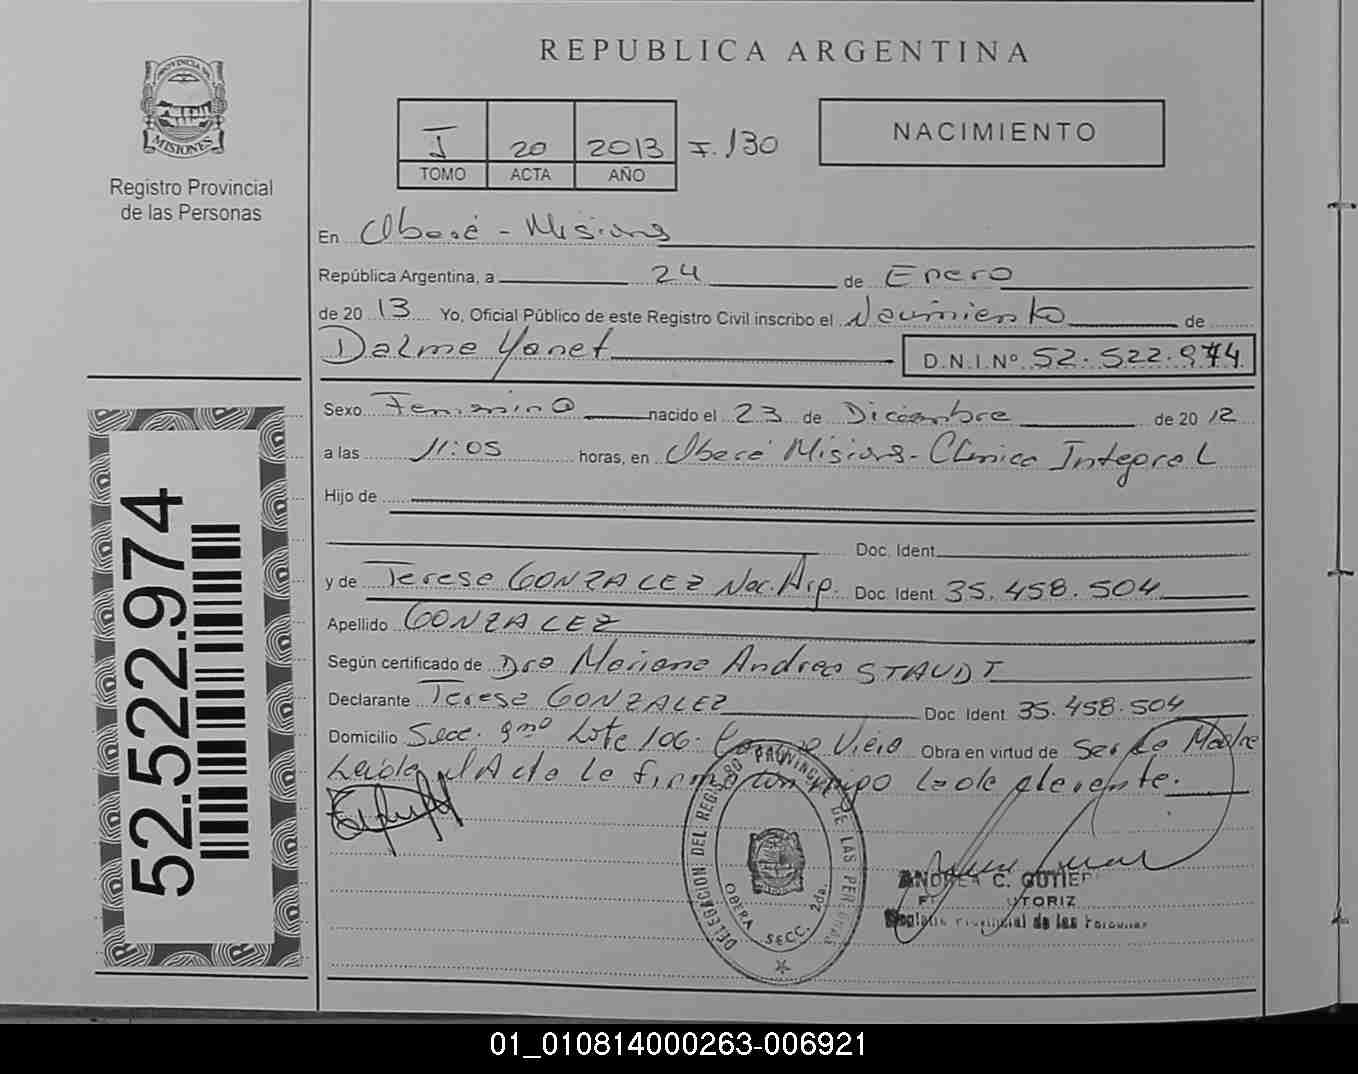 PROVINCIA DE
MISIONES
Registro Provincial
de las Personas
52.522.974
REPUBLICA ARGENTINA
NACIMIENTO
I 20 2013 F. 130
TOMO ACTA AÑO
En Oberá - Misiones
República Argentina, a 24 de Enero
de 20 13 Yo, Oficial Público de este Registro Civil inscribo el Nacimiento de
Dalma Yanet D.N.I.Nº 52.522.974
Sexo Femenino nacido el 23 de Diciembre de 20 12
a las 11:05 horas, en Oberá Misiones - Clínica Integral
Hijo de
Doc. Ident.
y de Teresa GONZALEZ Nac. Arg. Doc. Ident. 35.458.504
Apellido GONZALEZ
Según certificado de Dra Mariana Andrea STAUDT
Declarante Teresa GONZALEZ Doc. Ident. 35.458.504
Domicilio Secc. 9na Lote 106. Campo Viera Obra en virtud de Ser la Madre
Leída el Acta la firma conmigo la declarante.
DELEGACION DEL REGISTRO PROVINCIAL DE LAS PERSONAS
OBERA SECC. 2da.
ANDREA C. GUTIER
Registro Provincial de las Personas
01_010814000263-006921